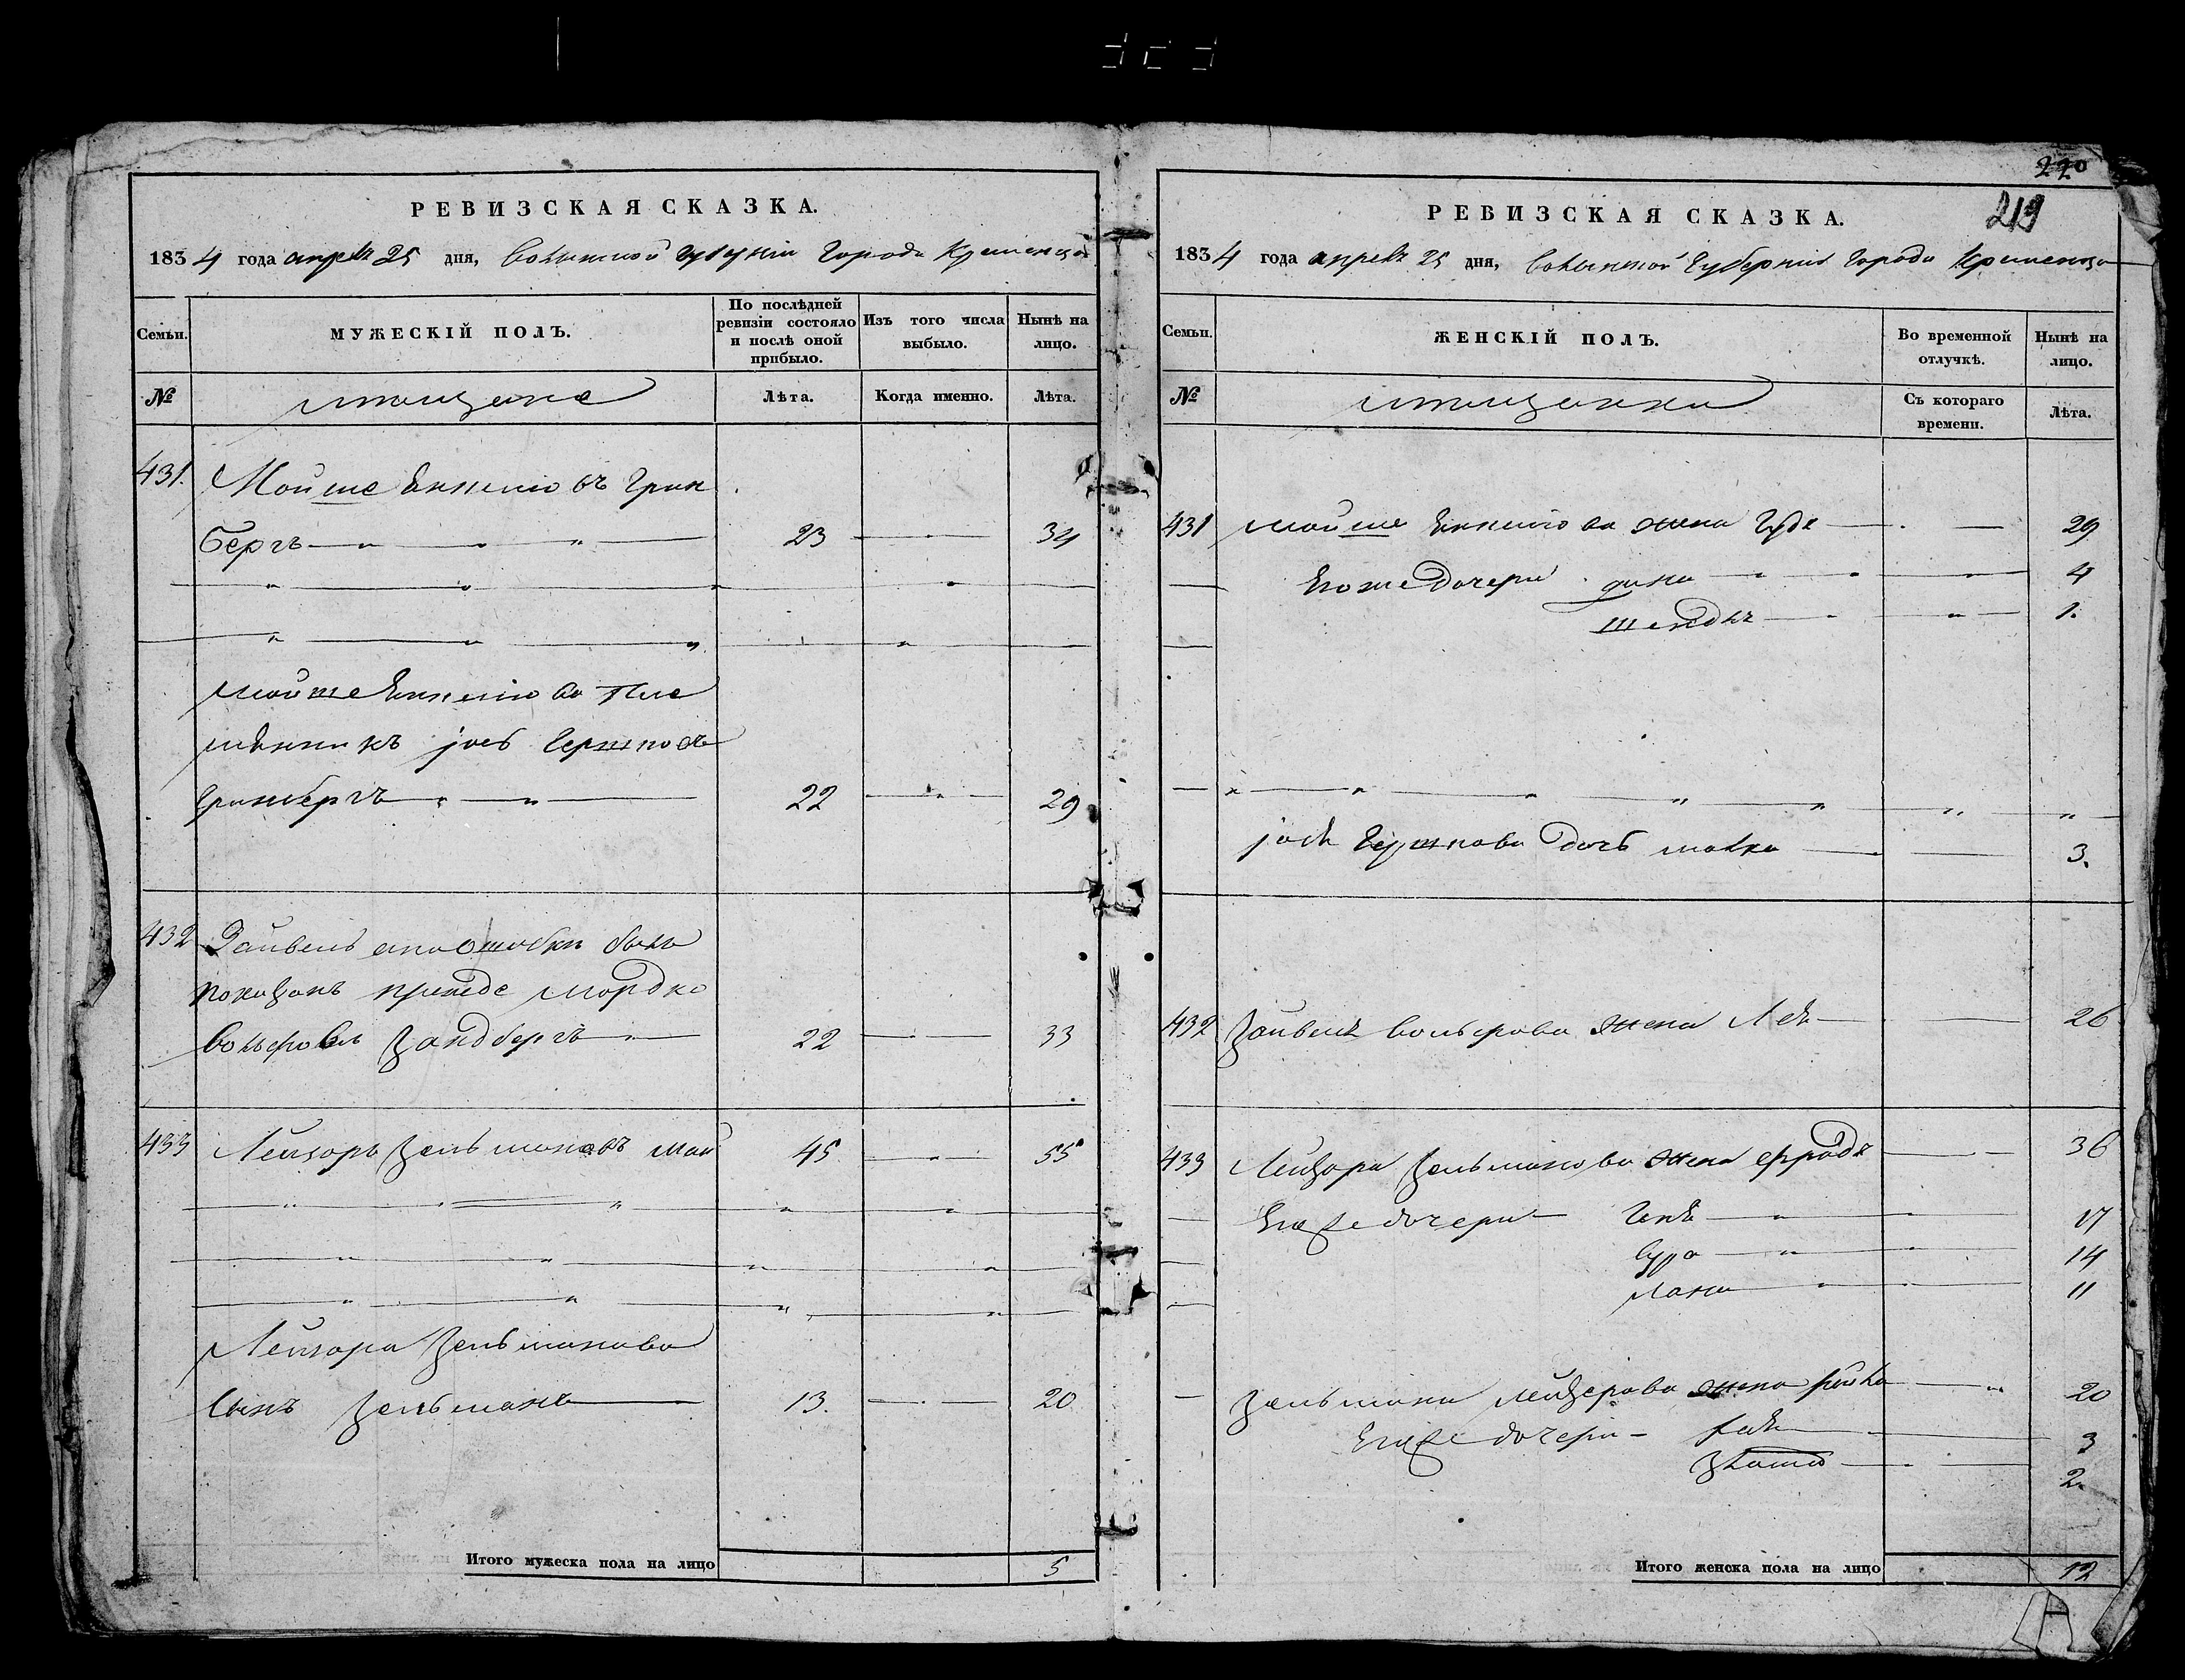 220
219
РЕВИЗСКАЯ СКАЗКА.
1834 года апреля 25 дня, Волынской губерніи Города Кременца
Семьи.
МУЖЕСКІЙ ПОЛЪ.
По послѣдней ревизіи состояло и послѣ оной прибыло.
Изъ того числа выбыло.
Нынѣ на лицо.
№
мещане
Лѣта.
Когда именно.
Лѣта.
431. Мойше Грин
бергъ 23 34
Мойше пле
мянникъ Іось Гершковъ
Гринбергъ 22 29
432 Зайвель а по ошибки былъ
показанъ прежде Мордко
Вольфовъ Зандбергъ 22 33
433 Лейзоръ Зельмановъ Май 45 55
Лейзора Зельманова
Сынъ Зельманъ 13. 20
Итого мужеска пола на лицо 5
РЕВИЗСКАЯ СКАЗКА.
1834 года апреля 25 дня, Волынской Губерніи Города Кременца
Семьи.
ЖЕНСКІЙ ПОЛЪ.
Во временной отлучкѣ.
Нынѣ на лицо.
№
мещанки
Съ котораго времени.
Лѣта.
431 Мойше жена 29
Его же дочери 4
1.
Гершкова дочь 3.
432 Зайвеля Вольфова жена Лея 26
433 Лейзора Зельманова жена Фрада 36
Его же дочери Геня 17
Сура 14
11
Зельмана Лейзерова жена 20
Его же дочери 3
Злота 2.
Итого женска пола на лицо 12